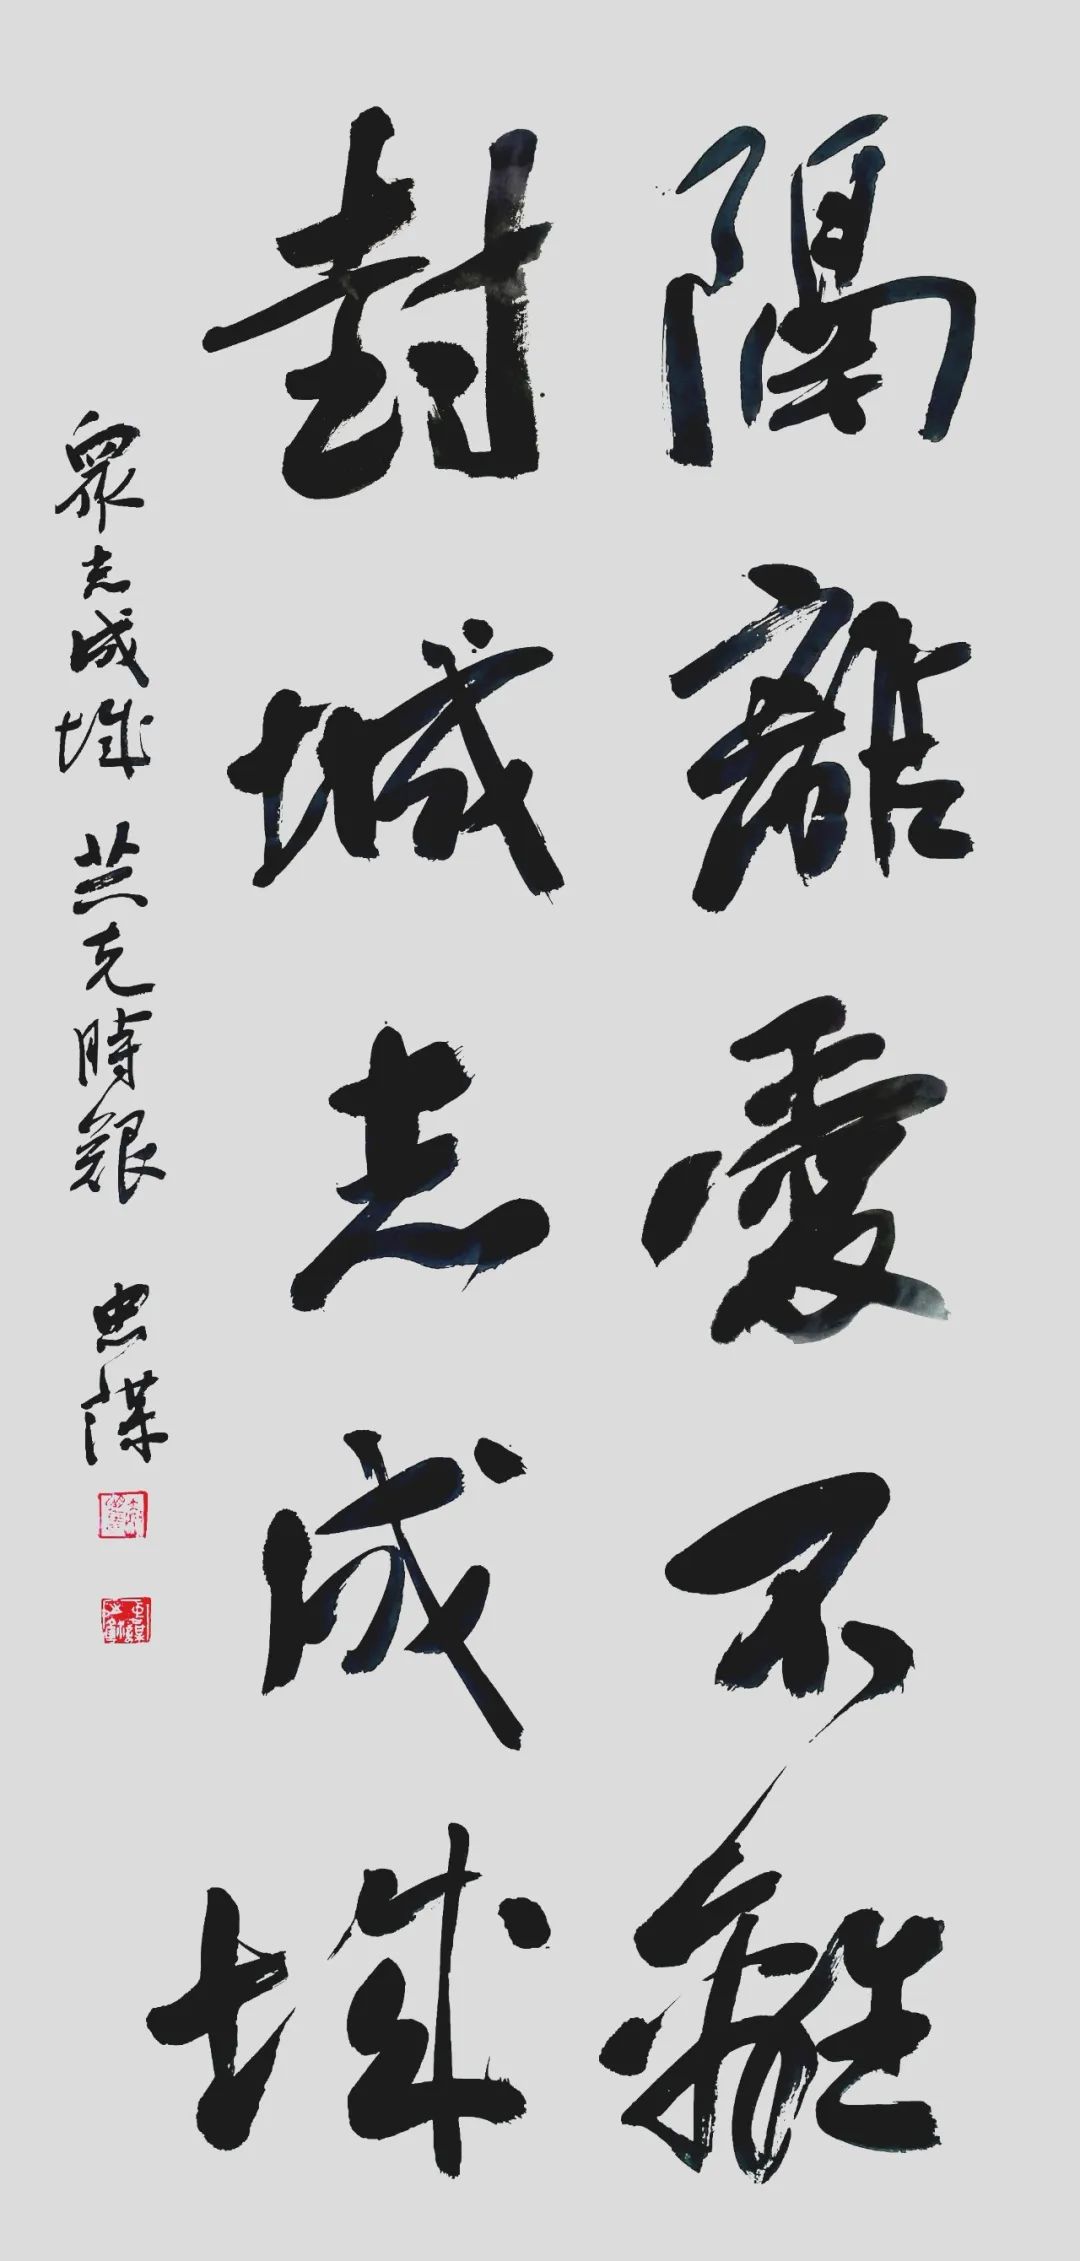 隔離愛不離
封城志成城
眾志成城 共克時艱 忠謀